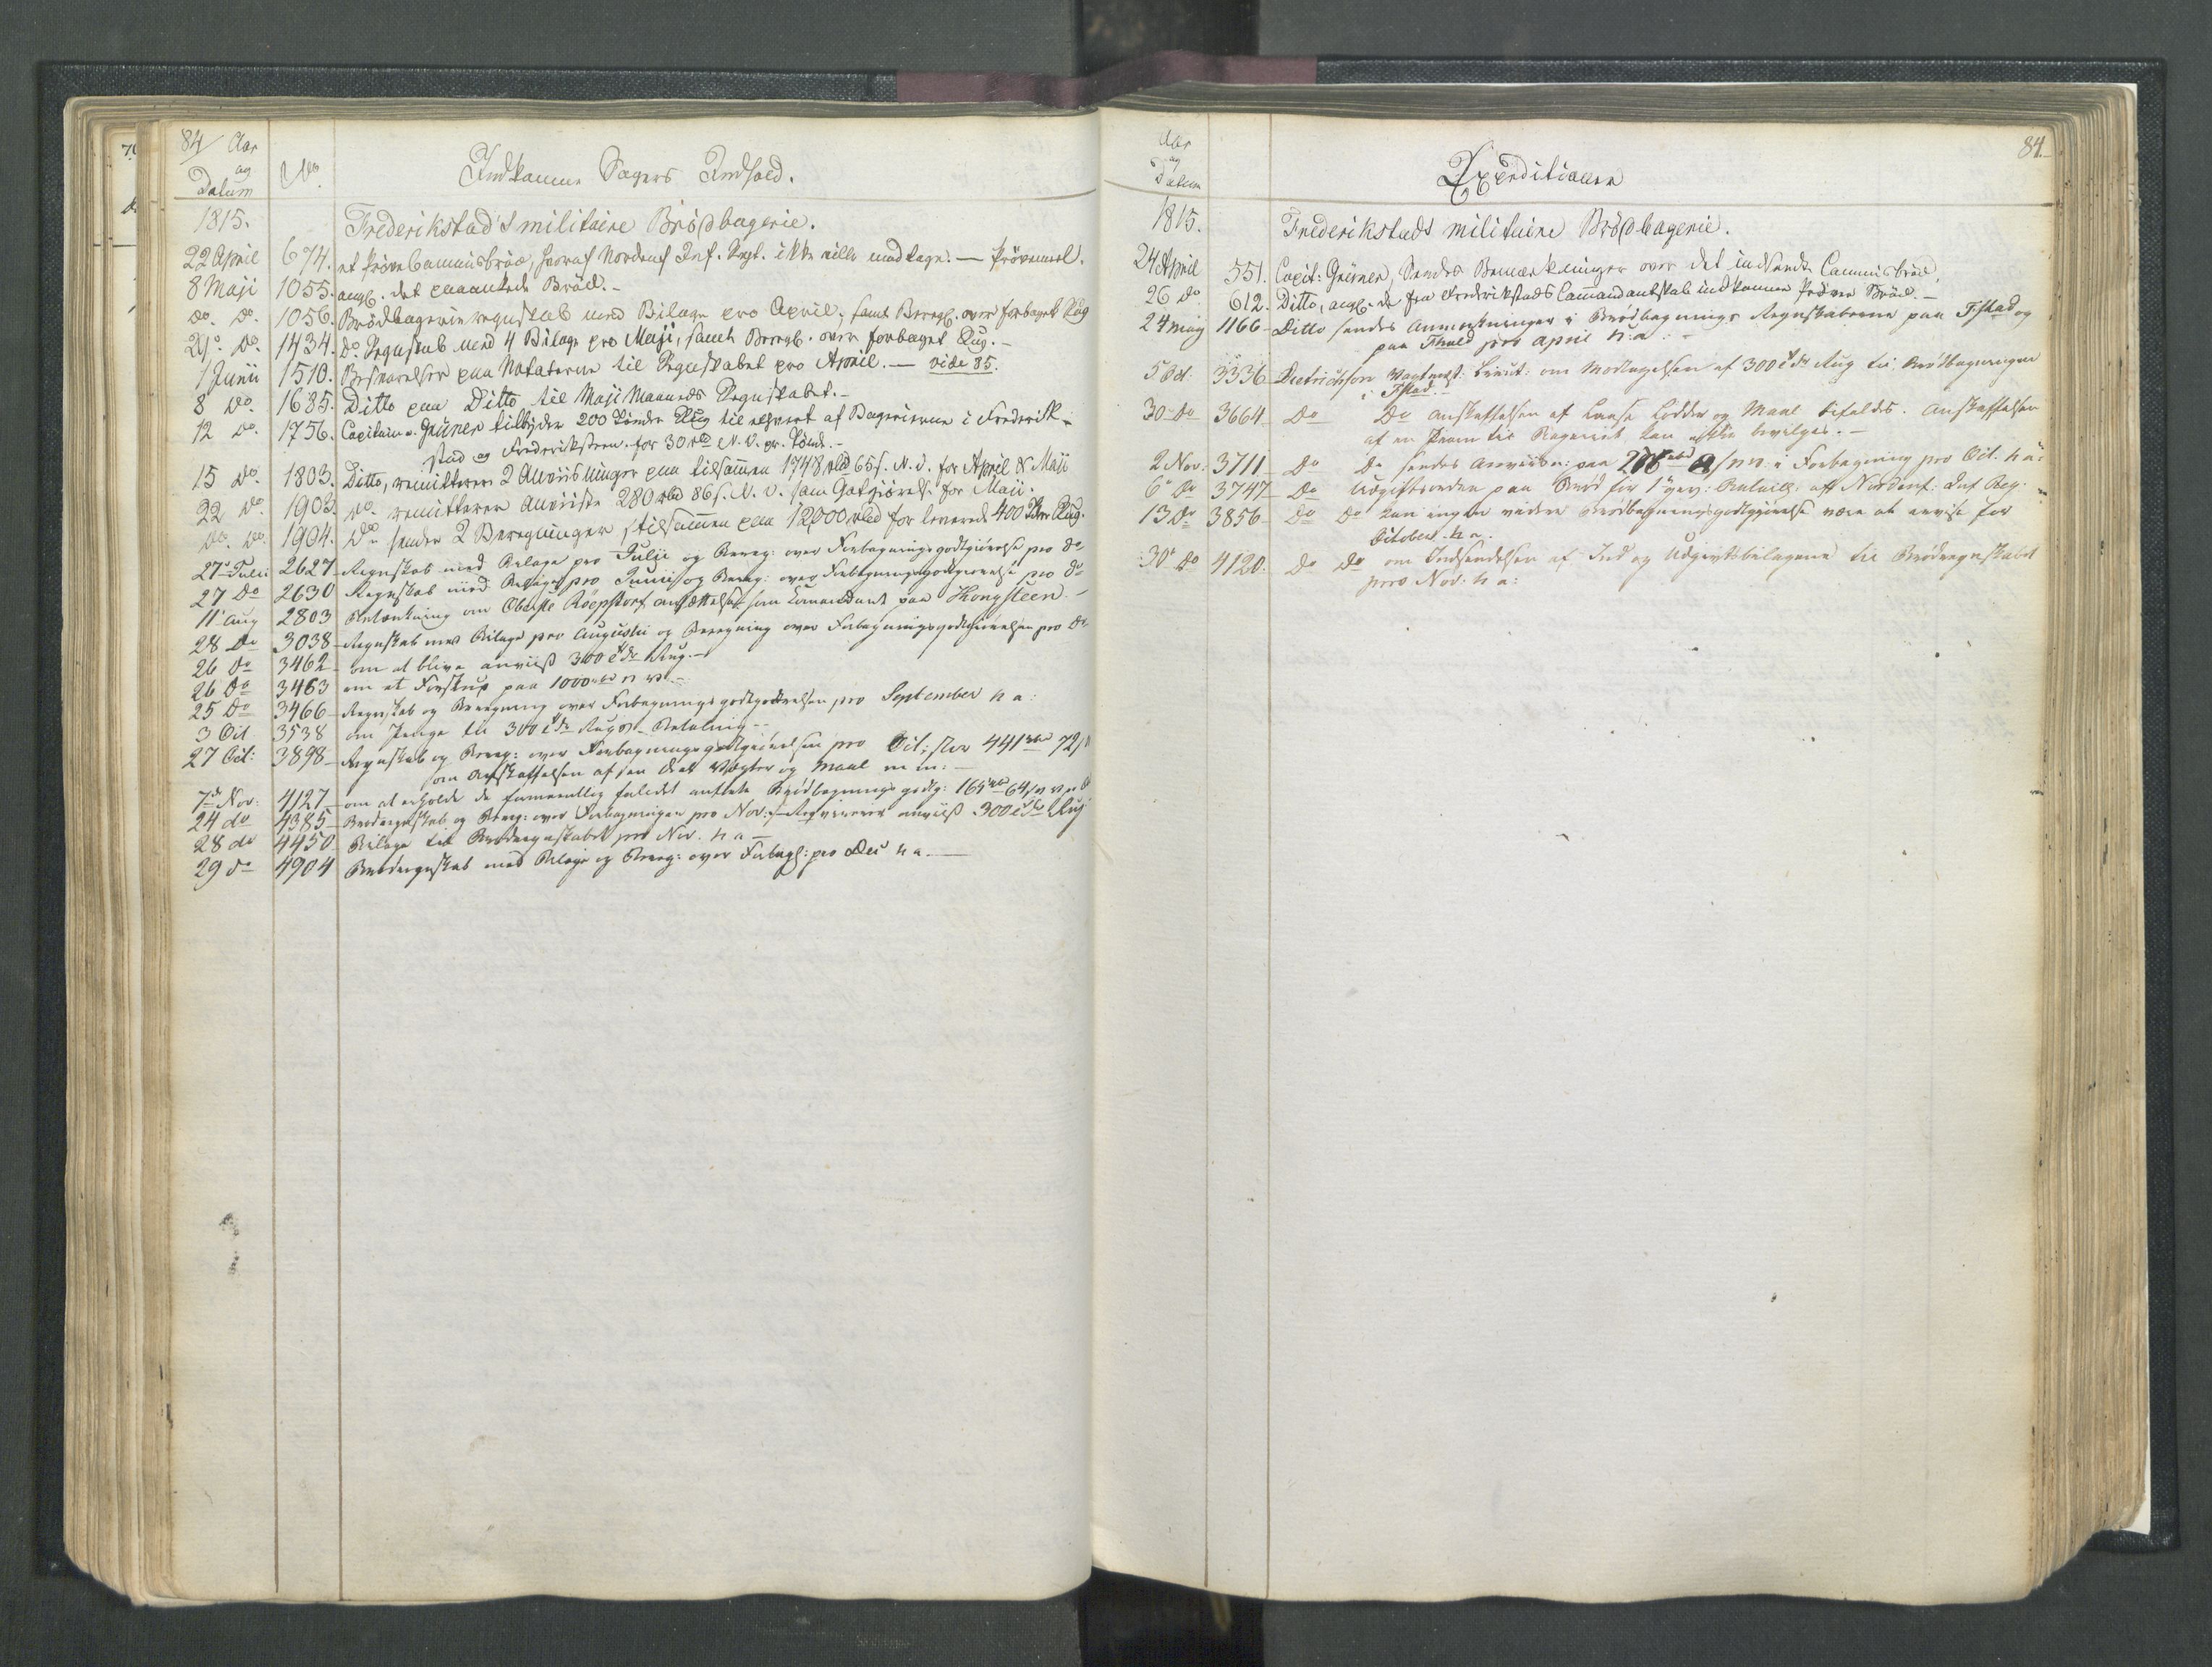 84/ Aar
og
Datum
No
Indkomne Sagers Indhold.
1815.
Frederikstad's militaire Brødbagerie.
22 April 674. et prøve Commisbrød, hvoraf Nordenf Inf. Regt. ikke ville modtage. — Prøvemeel.
8 Maji 1055. angl. det paaankede Brød. –
do. do. 1056. Brødbagerie regnskab med Bilage pro April, samt Beregl. over forbaget Rug
29. do. 1434. do. Regnskab med 4 Bilage pro Maji, samt Beregl. over forbaget Rug. –
1 Junii 1510. Besvarelser paa Notaterne til Regnskabet pro April. — vide 85.
8 do. 1685. Ditto paa Ditto til Maji Maaneds Regnskabet. –
12 do. 1756. Capitain v. Grüner tilbyder 200 Tønder Rug til ethvert af Bagerierne i Frederik-
stad og Frederiksteen. for 30 rbd N. V. pr. Tønde. –
15 do. 1803. Ditto, remitterer 2 Anviisninger paa tilsammen 1748 rbd 65 s. N. V. for April & Maji
22 do. 1903. do. remitterer Anviisn 280 rbd 86 s. N. V. som Godtgiørels. for Maji.
do. do. 1904. do. sender 2 Beregninger tilsammen paa 12000 rbd for leverede 400 Tdr Rug.
27 Julii 2627 – Regnskab med Bilage pro Julii og Bereg: over Forbagnings godtgiørelse pro do
27 Do 2630 Regnskab med Bilage pro Junii og Bereg: over Forbagningsgodtgiørelse pro do
11 Aug 2803 Betænkning om Oberste Röepstorf ansættelse som Comandant paa Kongsteen. –
28 Do 3038 – Regnskab med Bilage pro Augustii og Beregning over Forbagningsgodtgiørelsen pro Do
26 Do 3462 – om at blive anviist 300 Tdr Rug. –
26 Do 3463 om et Forskud paa 1000 rbd N V. –
25 Do 3466 – Regnskab og Beregning over Forbagnings godtgiørelsen pro September h a:
3 Oct 3538 om Penge til 300 Tdr Rugs Betalning –
27 Oct: 3898 – Regnskab og Bereg: over Forbagnings godtgiørelsen pro Oct: stor 441 rbd 72 s
om Anskaffelsen af en deel Vægter og Maal m m: –
7 Nov: 4127 – om at erholde de formeentlig forledet anførte Brødbagnings godtg: 165 rbd 64 s N V
24 do 4385 – Brødregnskab og Bereg: over Forbagningen pro Nov: – Reqvirerer anviist 300 Tdr Rug
28 do 4450 – Bilage til Brødregnskabet pro Nov. h a –
29 do 4904 Brødregnskab med Bilage og Bereg: over Forbagl: pro Dec h a. —
Aar
og
Datum
Expeditionen
84.
1815.
Frederikstads militaire Brødbagerie.
24 April 551. Capit: Grüner, Sendes Bemærkninger over det indsendte Commisbrød.
26 do. 612. Ditto, angl. de fra Frederikstads Commandantskab indkomne Prøver Brød. –
24 may 1166 – Ditto sendes Anmerkninger i Brødbagnings Regnskaberne paa Fstad og
paa Fhald pro April h: a. –
5 Oct. 3336 – Dietrichson Vagtmst: Lieut: om Modtagelsen af 300 Tdr Rug til Brødbagningen
i Fstad. –
30 Do 3664 – Do Do Anskaffelsen af Laase Lodder og Maal bifaldes. Anskaffelsen
af en Pram til Bageriet kan ikke bevilges. –
2 Nov. 3711 – Do Do sendes Anviisn: paa rbd s N V. i Forbagning pro Oct. h a:
6 Do 3747 – Do Udgiftsorden paa Brød for 1ste gev: Bataill: aff Nordenf: Inf Reg.
13 Do 3856 – Do Do kan ingen videre Brødbagningsgodtgiørelse være at anvise for
October h a.
30 Do 4120. Do Do om Indsendelsen af Ind og Udgiftsbilagene til Brødregnskabet
pro Nov: h a: